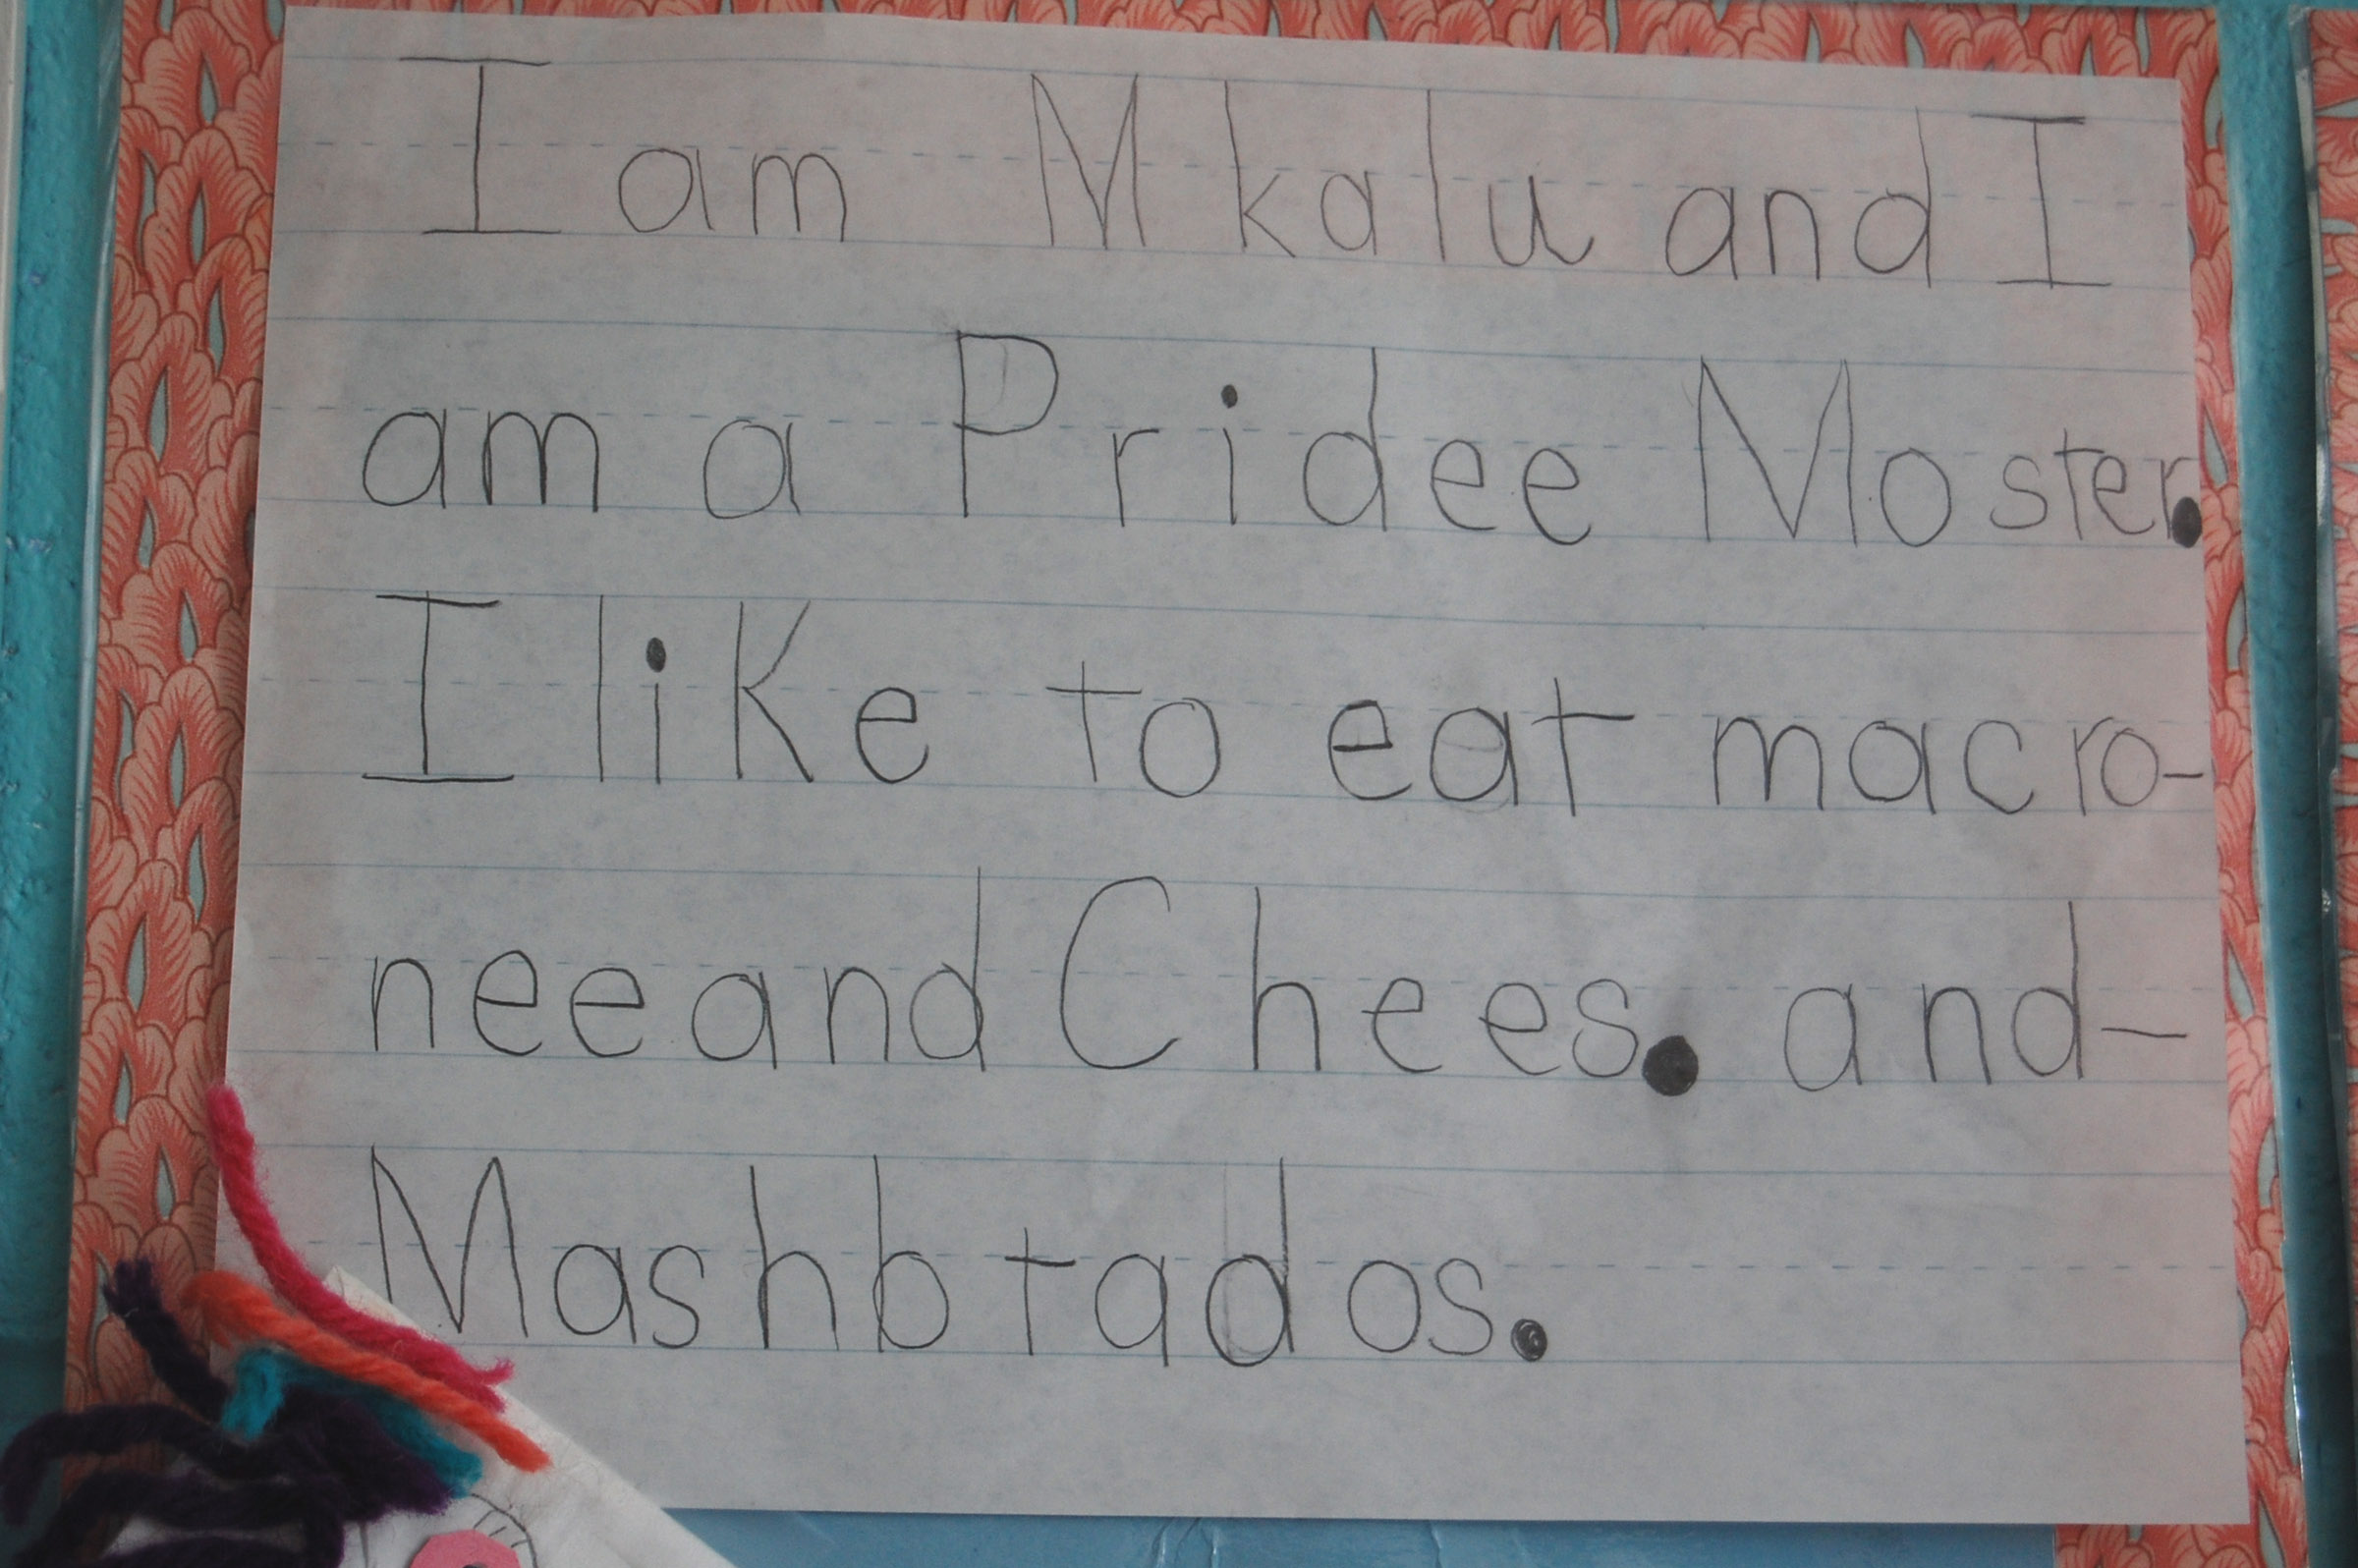 I am Mkalu and I
am a Pridee Moster.
I like to eat macro-
nee and Chees. and-
Mashbtados.